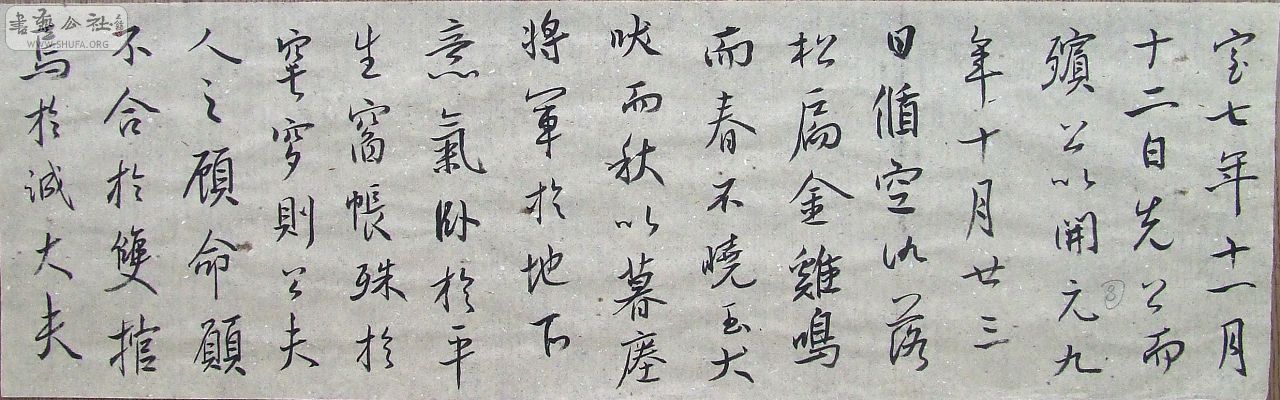 室七年十一月
十二日先公而
殯公以開元九
年十月廿三
日循空仍落
松扃金雞鳴
而春不曉玉犬
吠而秋以暮塵
将軍於地下
意氣卧於平
生窗帳殊於
窀穸則公夫
人之顧命顧
不合於雙棺
焉於誠大夫
8
書藝公社
WWW.SHUFA.ORG